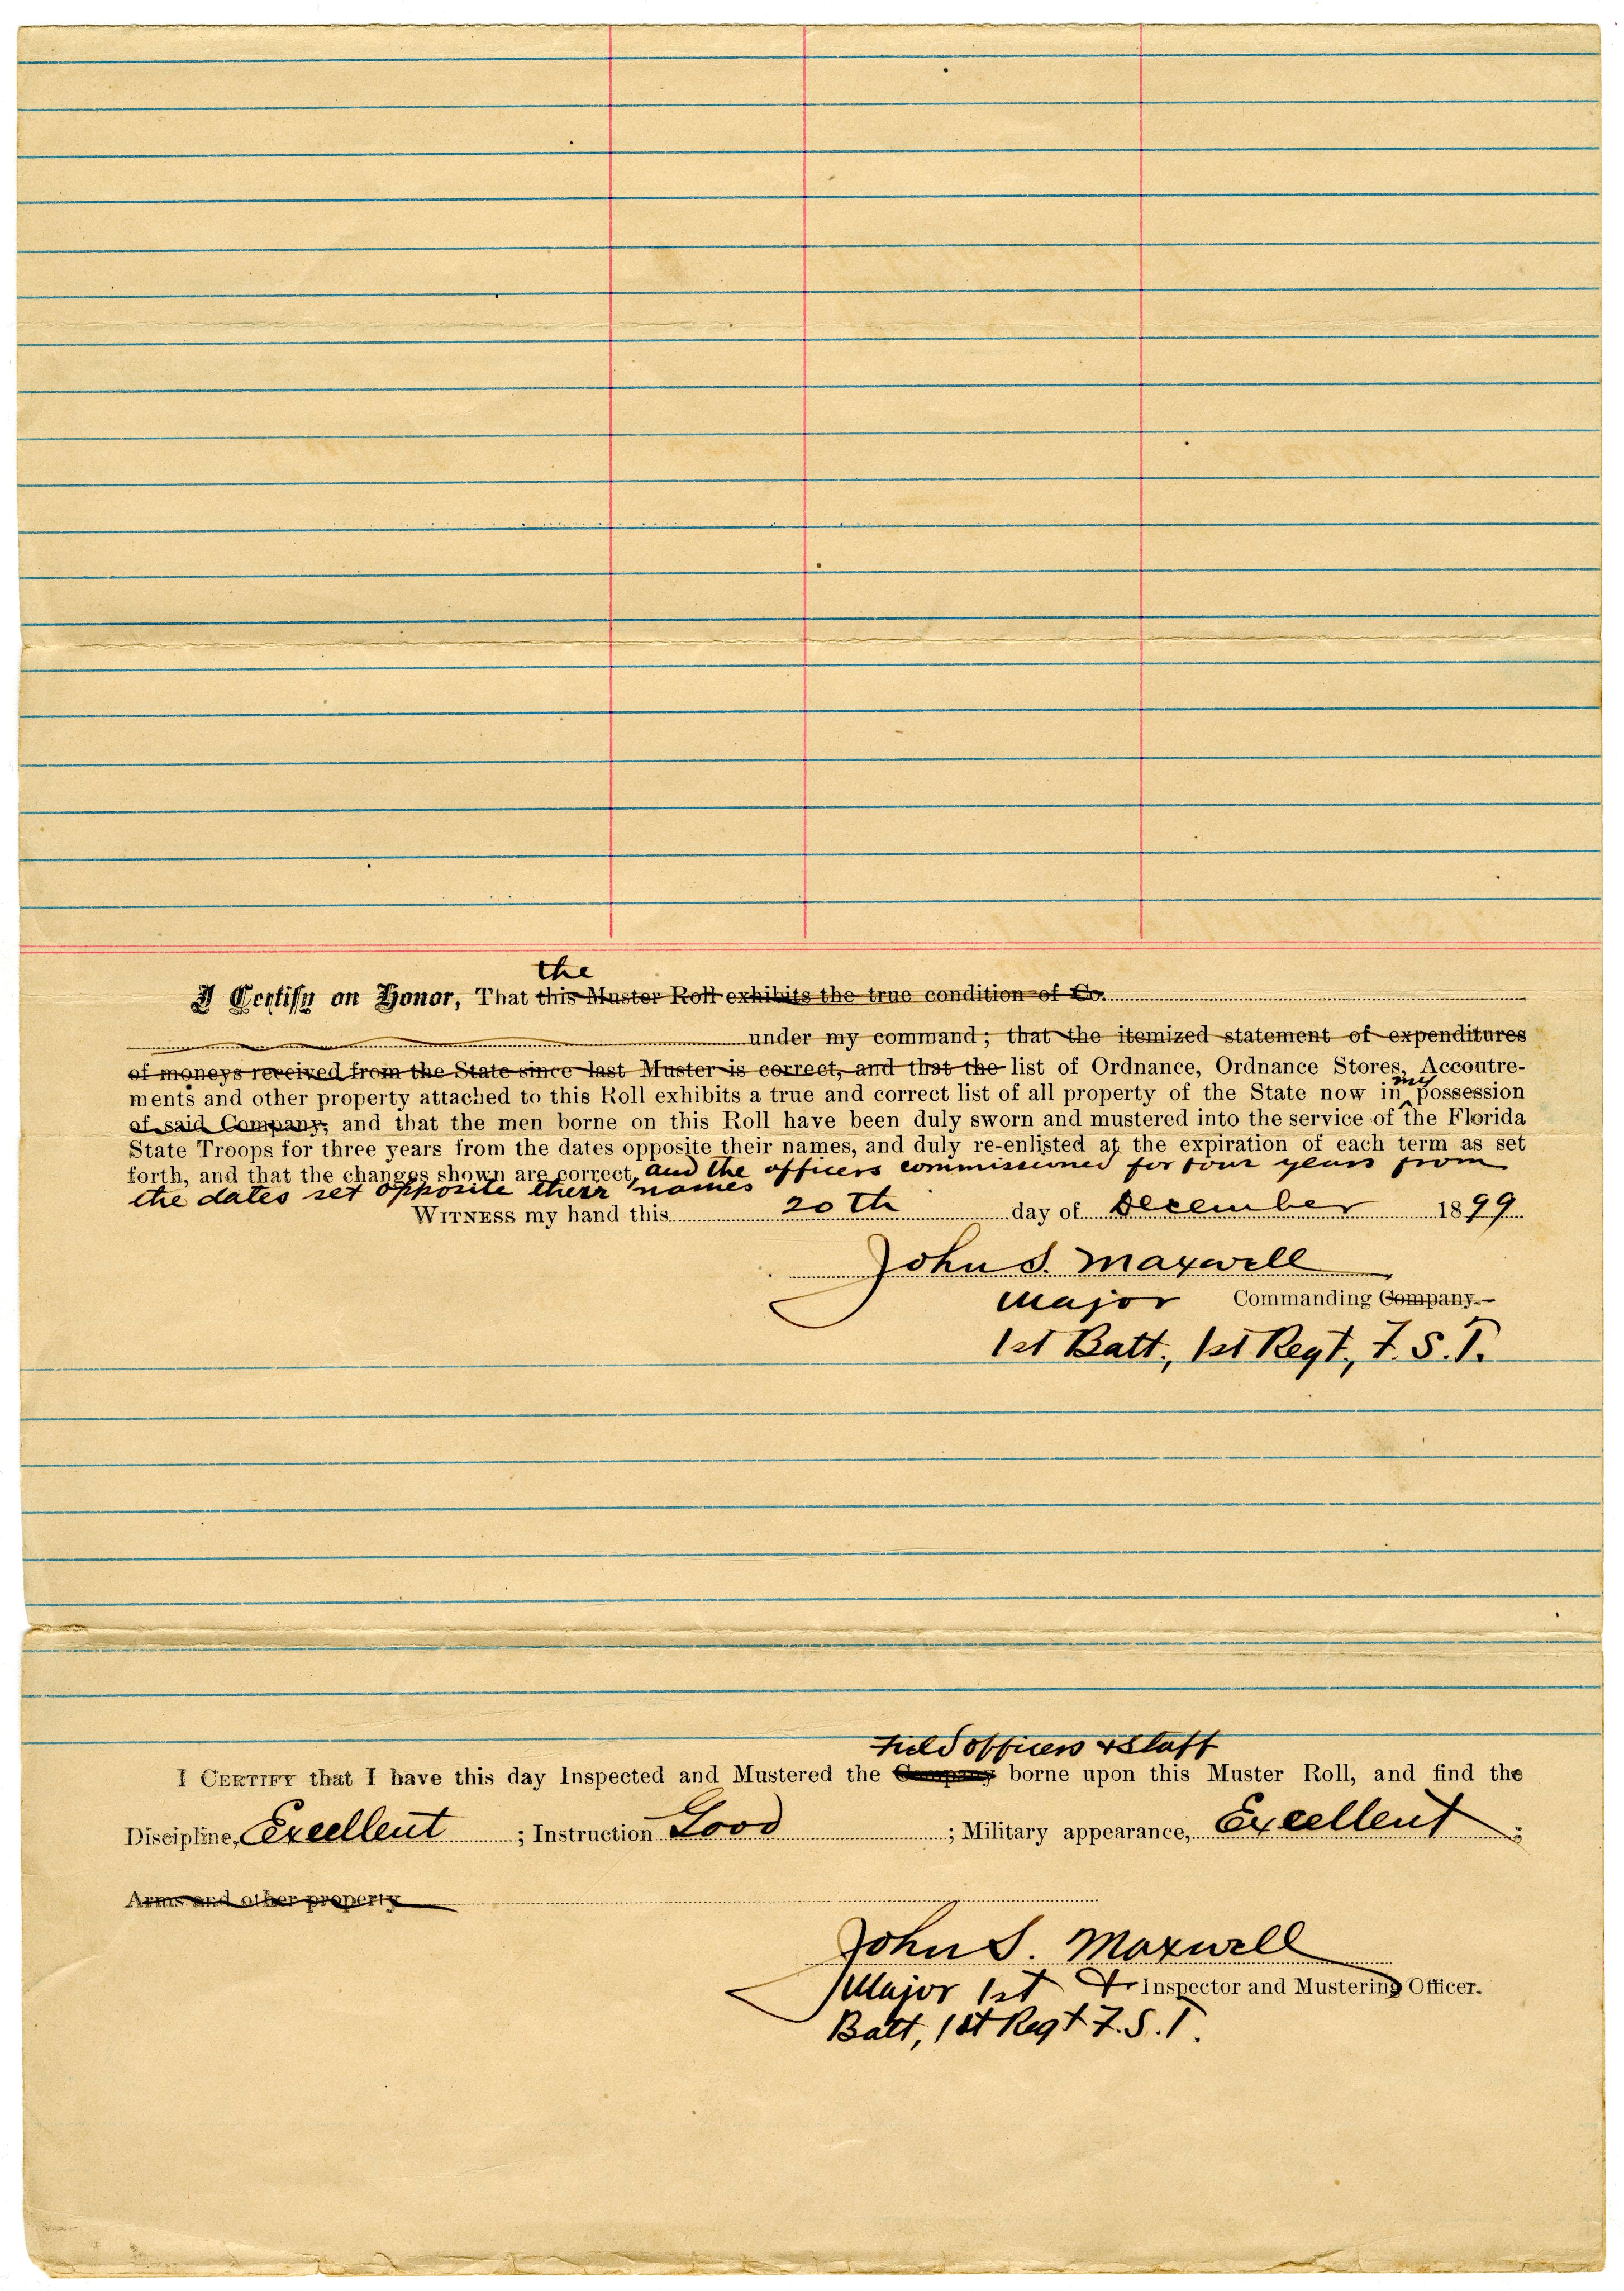 the
I Certify on Honor, That this Muster Roll exhibits the true condition of Co.
under my command; that the itemized statement of expenditures
of moneys received from the State since last Muster is correct, and that the list of Ordnance, Ordnance Stores, Accoutre-
my
ments and other property attached to this Roll exhibits a true and correct list of all property of the State now in possession
of said Company; and that the men borne on this Roll have been duly sworn and mustered into the service of the Florida
State Troops for three years from the dates opposite their names, and duly re-enlisted at the expiration of each term as set
forth, and that the changes shown are correct, and the officers commissioned for four years from
the dates set opposite their names
WITNESS my hand this 20th day of December 1899
John S. Maxwell
Major Commanding Company.
1st Batt., 1st Regt, F.S.T.
Field officers & Staff
I CERTIFY that I have this day Inspected and Mustered the Company borne upon this Muster Roll, and find the
Discipline, Excellent ; Instruction Good ; Military appearance, Excellent ;
Arms and other property
John S. Maxwell
Major 1st & Inspector and Mustering Officer.
Batt, 1st Regt F.S.T.